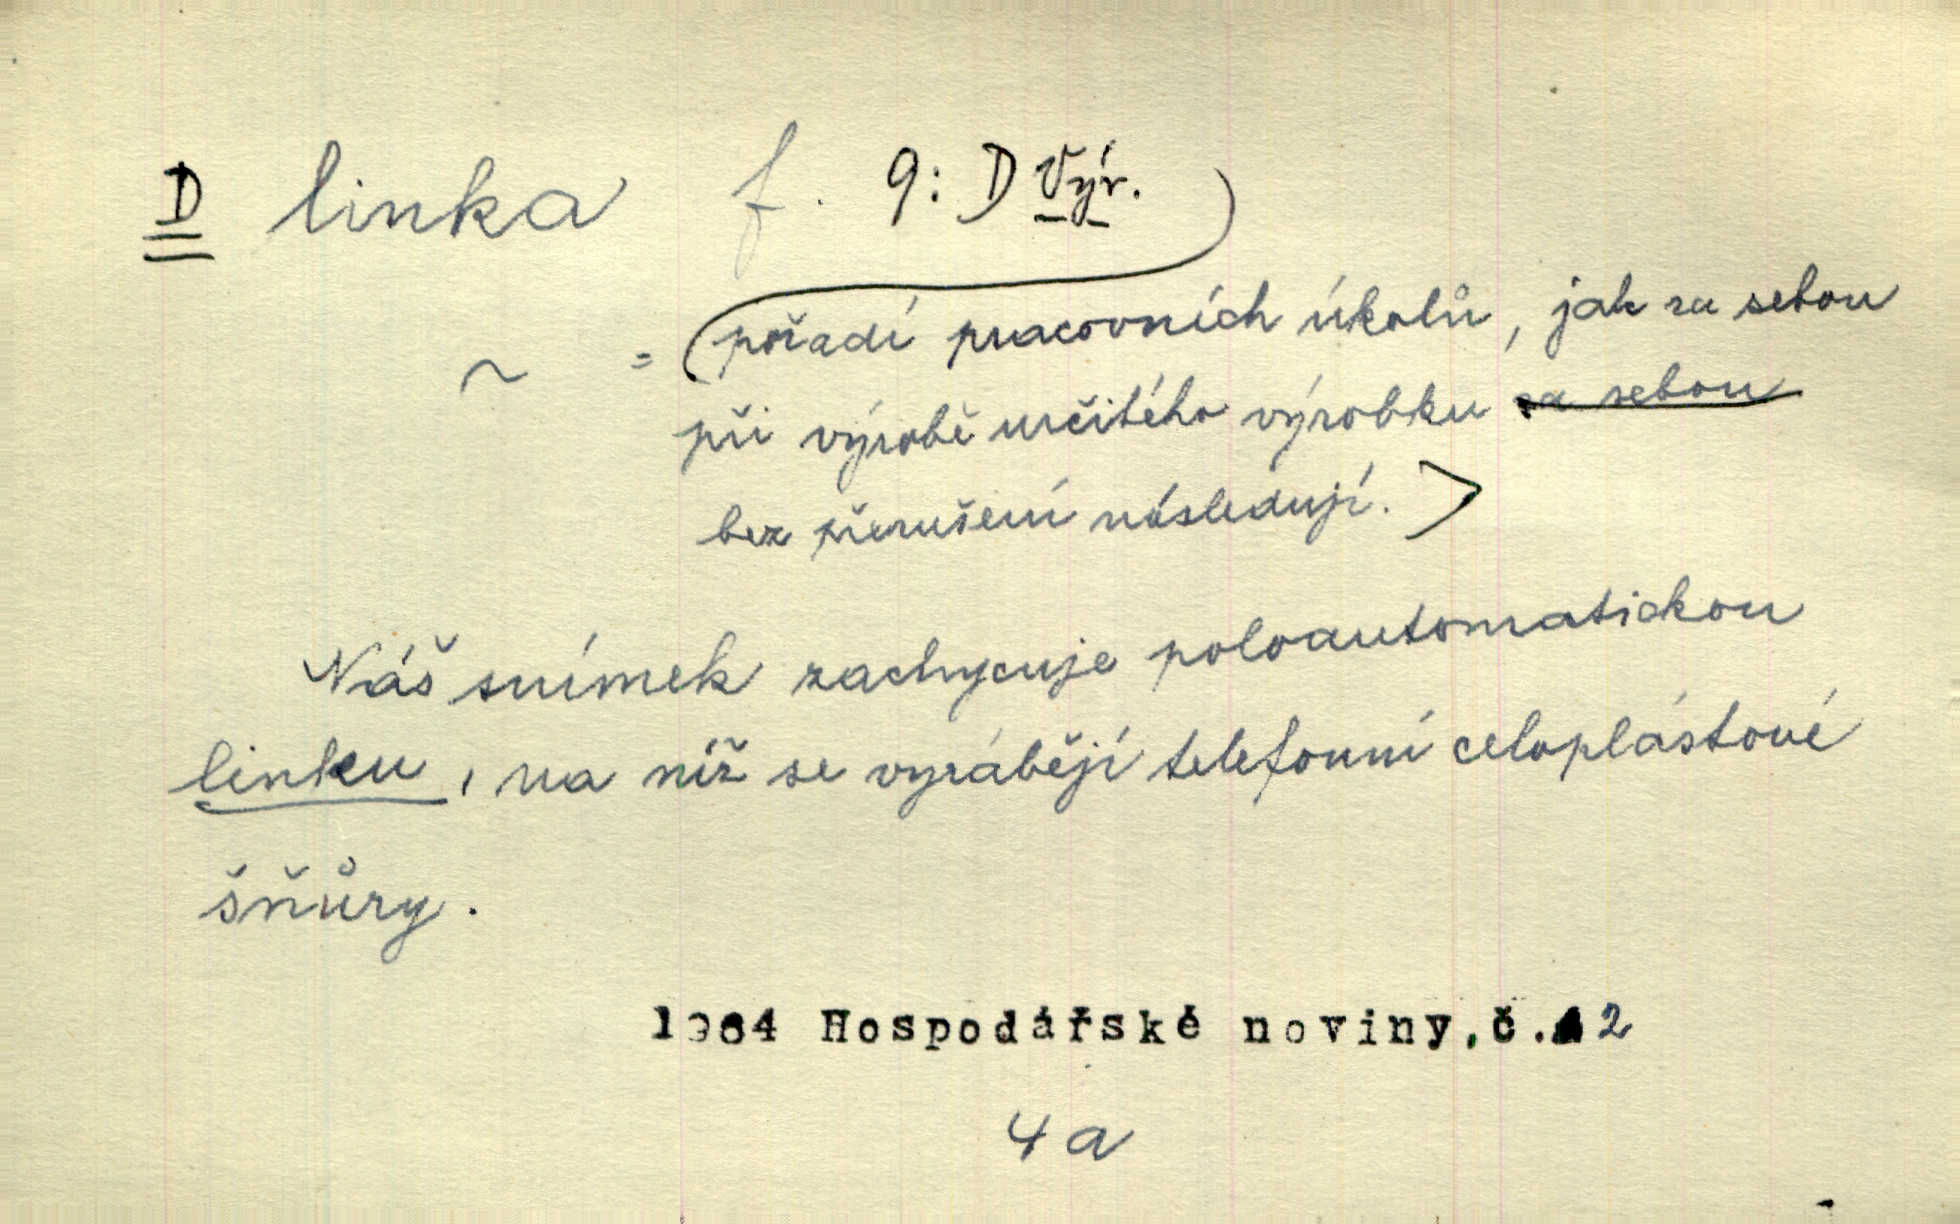 D linka f. 9: D Výr.
~ = (pořadí pracovních úkolů, jak za sebou
při výrobě určitého výrobku za sebou
bez přerušení následují. >
Náš snímek zachycuje poloautomatickou
linku, na níž se vyrábějí telefonní celoplástové
šňůry.
1964 Hospodářské noviny, č. 2
4a